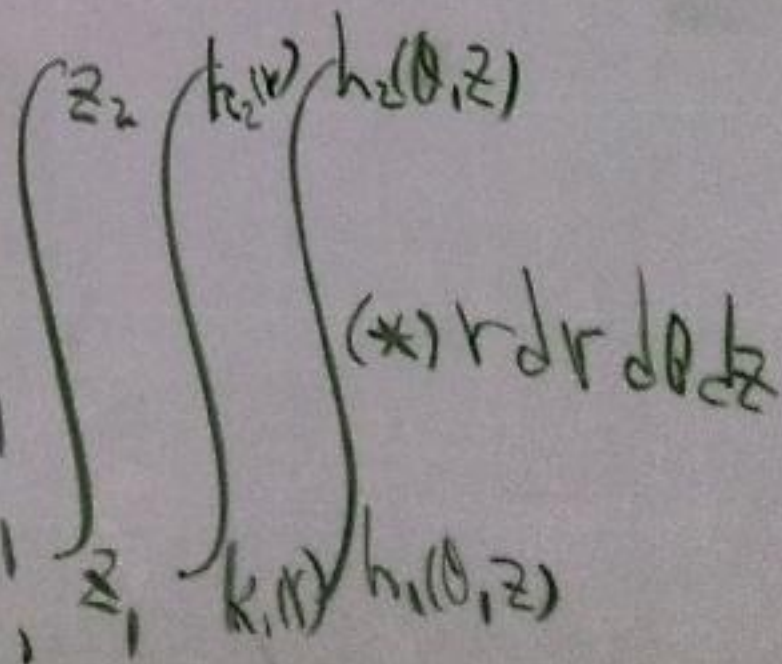 ∫_{z₁}^{z₂} ∫_{k₁(r)}^{k₂(r)} ∫_{h₁(θ,z)}^{h₂(θ,z)} (*) r dr dθ dz